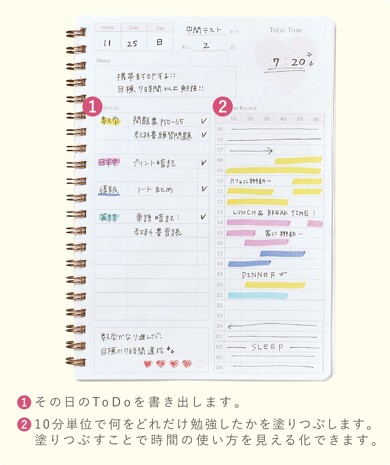 Month
Day
11 25 日
中間テスト まで
あと 2 日
Total Time
7:20
Memo
携帯まだやる!!
目標7時間以上勉強!!
1
To Do List
数学 問題集P50-65 ✓
教科書練習問題 ✓
日本史 プリント暗記 ✓
国語 ノートまとめ ✓
英語 単語暗記! ✓
教科書音読
2
Time Record
10 20 30 40 50 60
05
06
07
08
09
10
カフェに移動→
11
12
13 LUNCH & BREAK TIME!
14
15 家に移動→
16
17
18
19 DINNER
20
21
22
23
24
01
02 SLEEP
03
04
数学かなり進んだ!
目標の7時間達成
1 その日のToDoを書き出します。
2 10分単位で何をどれだけ勉強したかを塗りつぶします。
塗りつぶすことで時間の使い方を見える化できます。